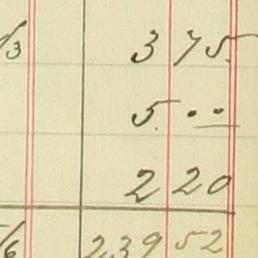 /3 3 75
5. ..
2 20
5/6 239 52